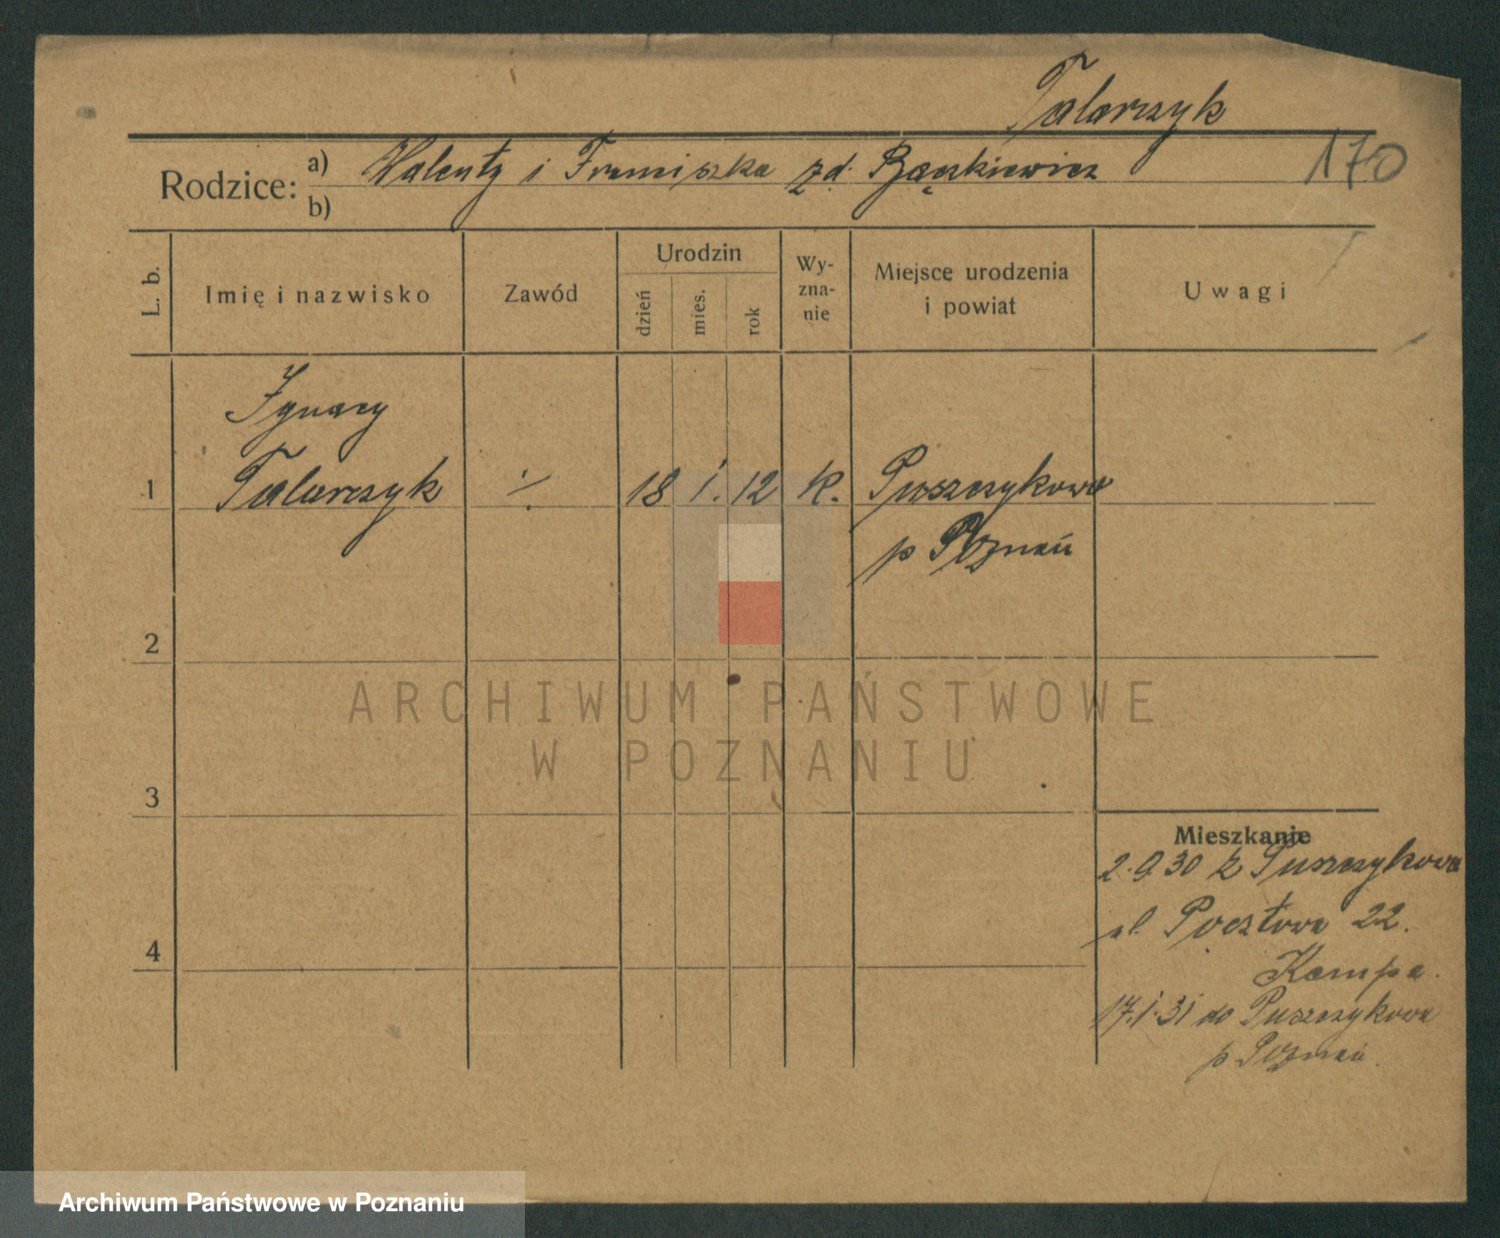 Talarczyk
170
Rodzice: a) Walenty i Franciszka z d. Bączkiewicz
b)
L. b.
Imię i nazwisko
Zawód
Urodzin
dzień
mies.
rok
Wy-
zna-
nie
Miejsce urodzenia
i powiat
Uwagi
Ignacy
1 Talarczyk ./. 18 1. 12 k. Puszczykowo
p Poznań
2
3
4
Mieszkanie
2.9.30 z Puszczykowa
ul. Pocztowa 22.
Kempa.
17.1.31 do Puszczykowa
p Poznań.
ARCHIWUM PAŃSTWOWE
W POZNANIU
Archiwum Państwowe w Poznaniu